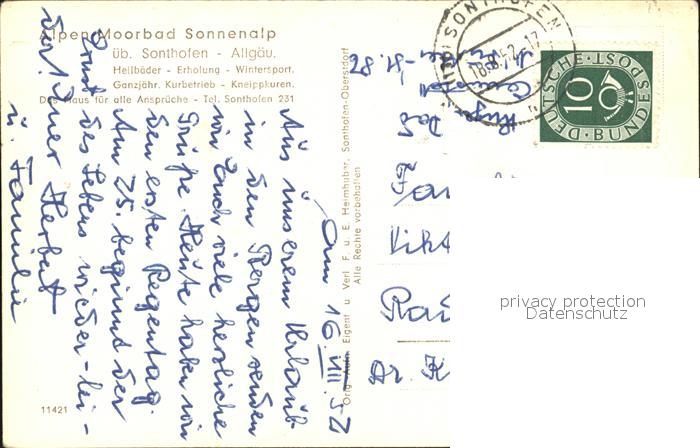 Alpen-Moorbad Sonnenalp
üb. Sonthofen - Allgäu.
Heilbäder - Erholung - Wintersport.
Ganzjähr. Kurbetrieb - Kneippkuren.
Das Haus für alle Ansprüche - Tel. Sonthofen 231
Am 16. VIII. 52
Aus unserem Urlaub
in den Bergen senden
wir Euch viele herzliche
Grüße. Heute haben wir
den ersten Regentag.
Am 25. beginnt der
Ernst des Lebens wieder - lei-
der! Euer Herbert
u. Familie
11421
Orig. Aufn. Eigent. u. Verl. F. u. E. Heimhuber, Sonthofen-Oberstdorf
Alle Rechte vorbehalten
SONTHOFEN
DEUTSCHE POST
BUNDESPOST
10
Dr. K
privacy protection
Datenschutz